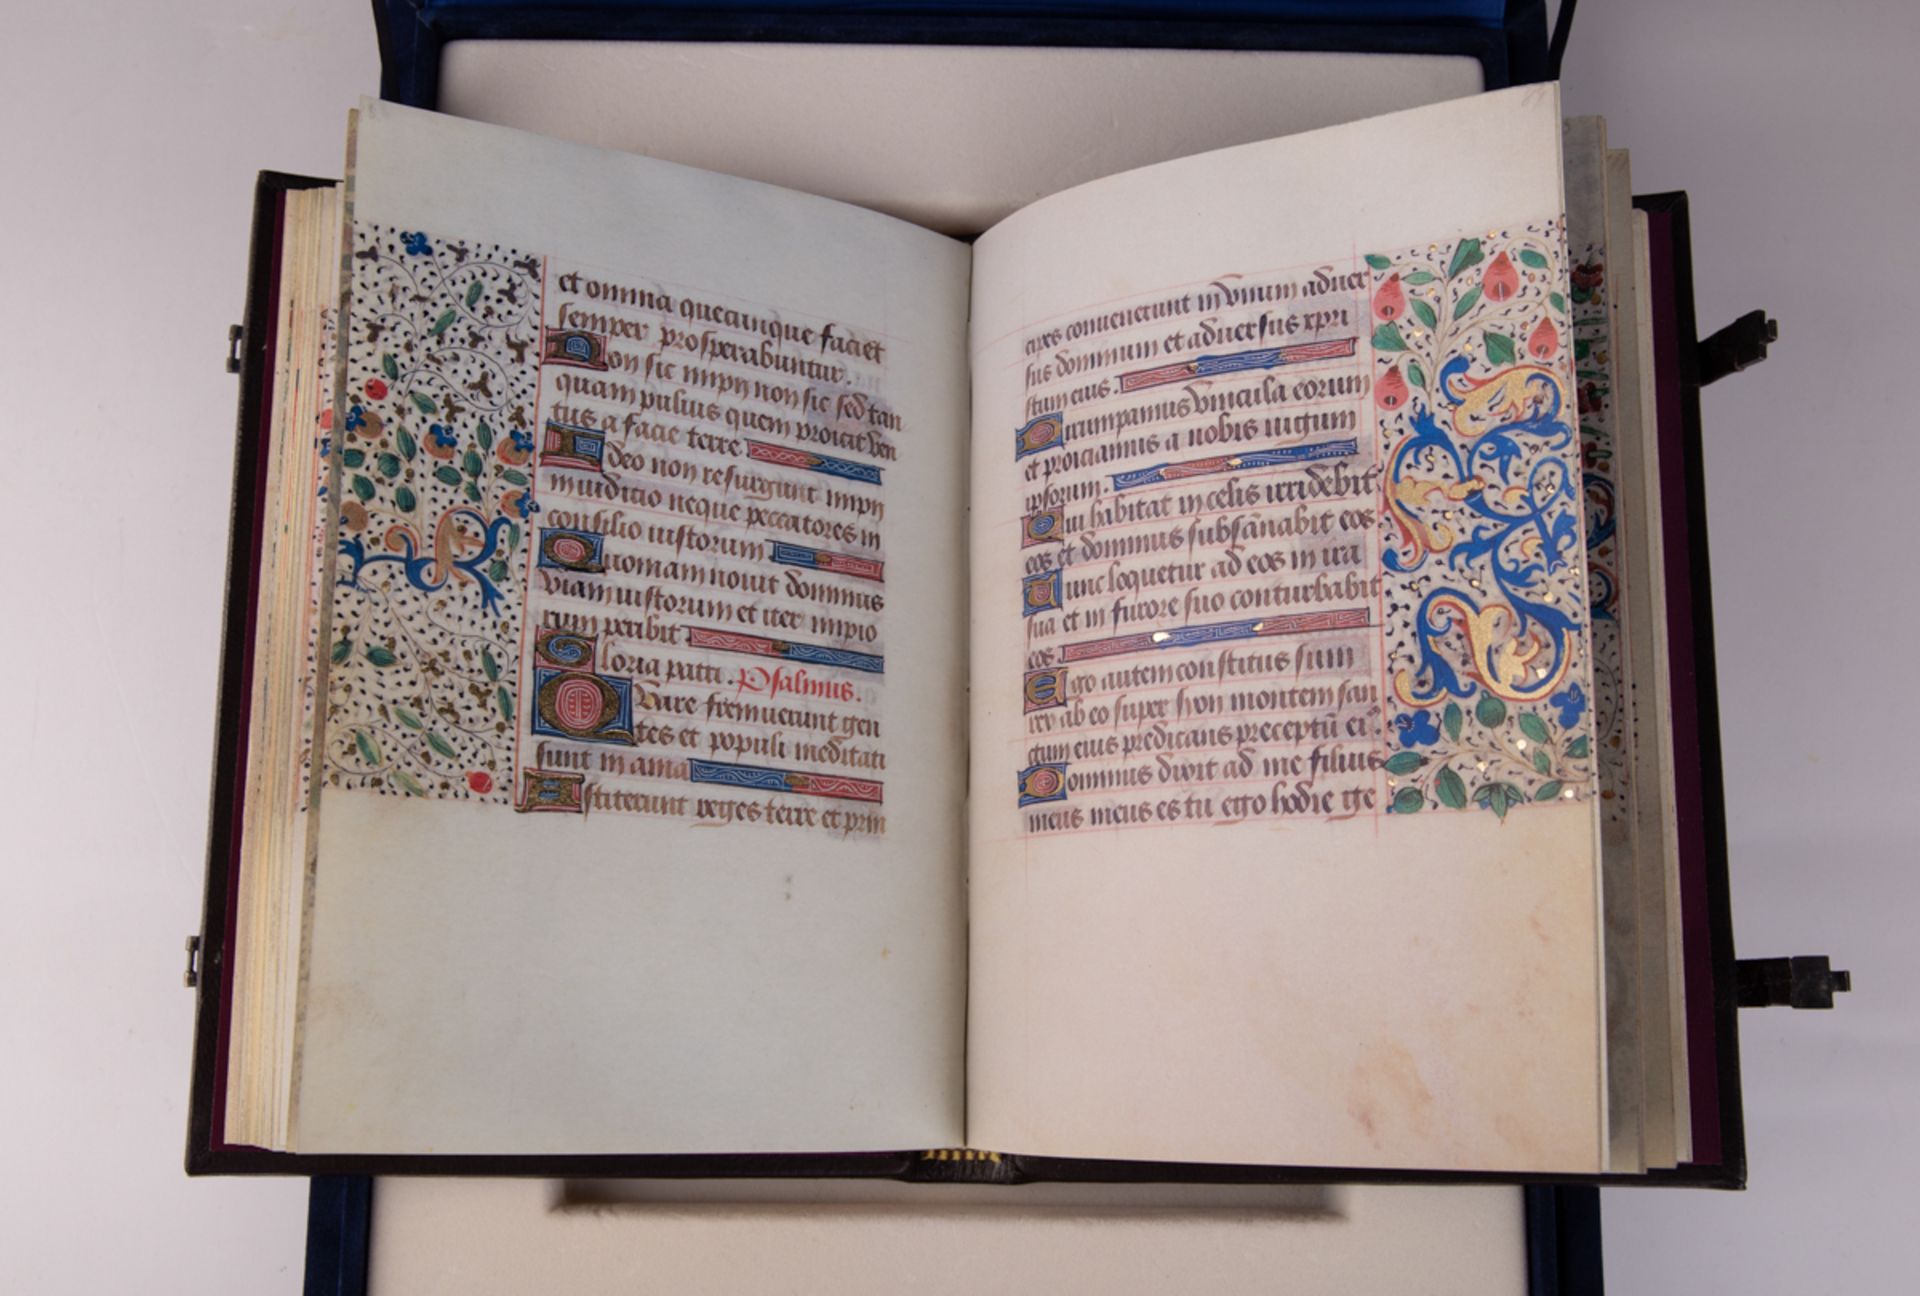 et omnia quecunque faciet
semper prosperabuntur.
Non sic impii non sic sed tan
quam pulius quem proicit ven
tus a facie terre
Ideo non resurgunt impii
in iudicio neque peccatores in
consilio iustorum
Quomam nouit dominus
viam iustorum et iter impio
rum peribit
Gloria patri. Psalmus.
Quare fremuerunt gen
tes et populi meditati
sunt inania
Astiterunt reges terre et prin
cipes conuenerunt in vnum aduer
sus dominum et aduersus xpri
stum eius.
Dirumpamus vincula eorum
et proiciamus a nobis iugum
ipsorum.
Qui habitat in celis irridebit
eos et dominus subsānabit eos
Tunc loquetur ad eos in ira
sua et in furore suo conturbabit
eos
Ego autem constitus sum
rex ab eo super syon montem san
ctum eius predicans preceptū ei9.
Dominus dixit ad me filius
meus es tu ego hodie ge